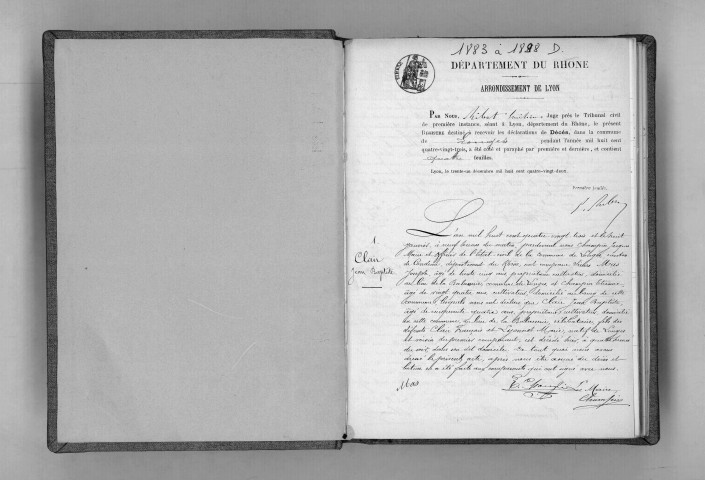 1883 à 1898 D.
DÉPARTEMENT DU RHONE
ARRONDISSEMENT DE LYON
PAR NOUS, Juge près le Tribunal civil
de première instance, séant à Lyon, département du Rhône, le présent
REGISTRE destiné à recevoir les déclarations de Décès, dans la commune
de pendant l'année mil huit cent
quatre-vingt-trois, a été coté et paraphé par première et dernière, et contient
quatre feuilles.
Lyon, le trente-un décembre mil huit cent quatre-vingt-deux.
Première feuille.
1
Clair
Jean Baptiste
L'an mil huit cent quatre vingt trois et le huit
janvier, à neuf heures du matin, pardevant nous Champin Jacques
Maire et officier de l'état civil de la Commune de canton
de Condrieu, département du Rhône, ont comparu Mas
Joseph, âgé de trente cinq ans propriétaire cultivateur, domicilié
au lieu de la commune de et Champin Etienne
âgé de vingt quatre ans cultivateur, domicilié au bourg de cette
commune, lesquels nous ont déclaré que Clair Jean Baptiste,
âgé de cinquante quatre ans, propriétaire cultivateur domicilié
en cette commune au lieu de la célibataire, fils des
défunts Clair François et Marie, natif de
et voisin du premier comparant, est décédé hier, à quatre heures
du soir, dans son dit domicile. En tant quoi nous avons
dressé le présent acte, après nous être assuré du décès
et a été faite aux comparants qui ont signé avec nous.
Mas
Le Maire